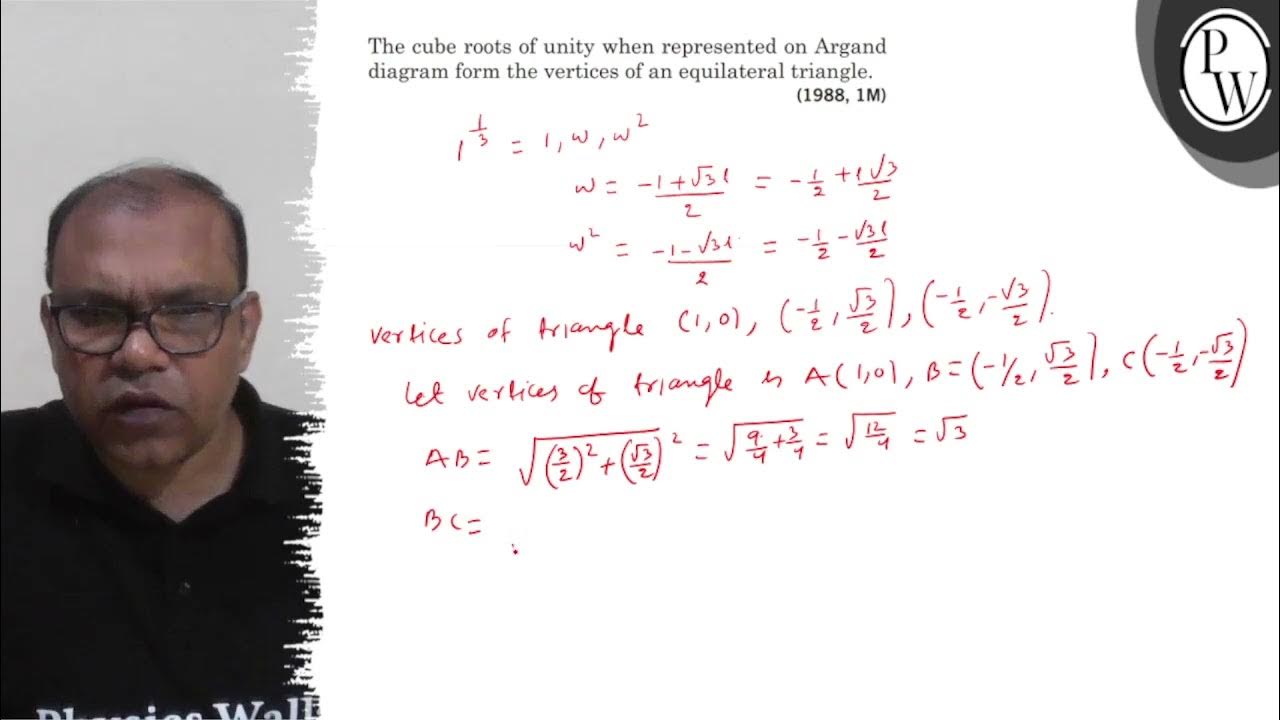 The cube roots of unity when represented on Argand
diagram form the vertices of an equilateral triangle.
(1988, 1M)
PW
1^(1/3) = 1, w, w²
w = (-1+√3i)/2 = -1/2 + i√3/2
w² = (-1-√3i)/2 = -1/2 - √3i/2
vertices of triangle (1,0), (-1/2, √3/2), (-1/2, -√3/2).
Let vertices of triangle is A(1,0), B=(-1/2, √3/2), C(-1/2, -√3/2)
AB = √((3/2)²+(√3/2)²) = √(9/4+3/4) = √(12/4) = √3
BC =
Physics Wall